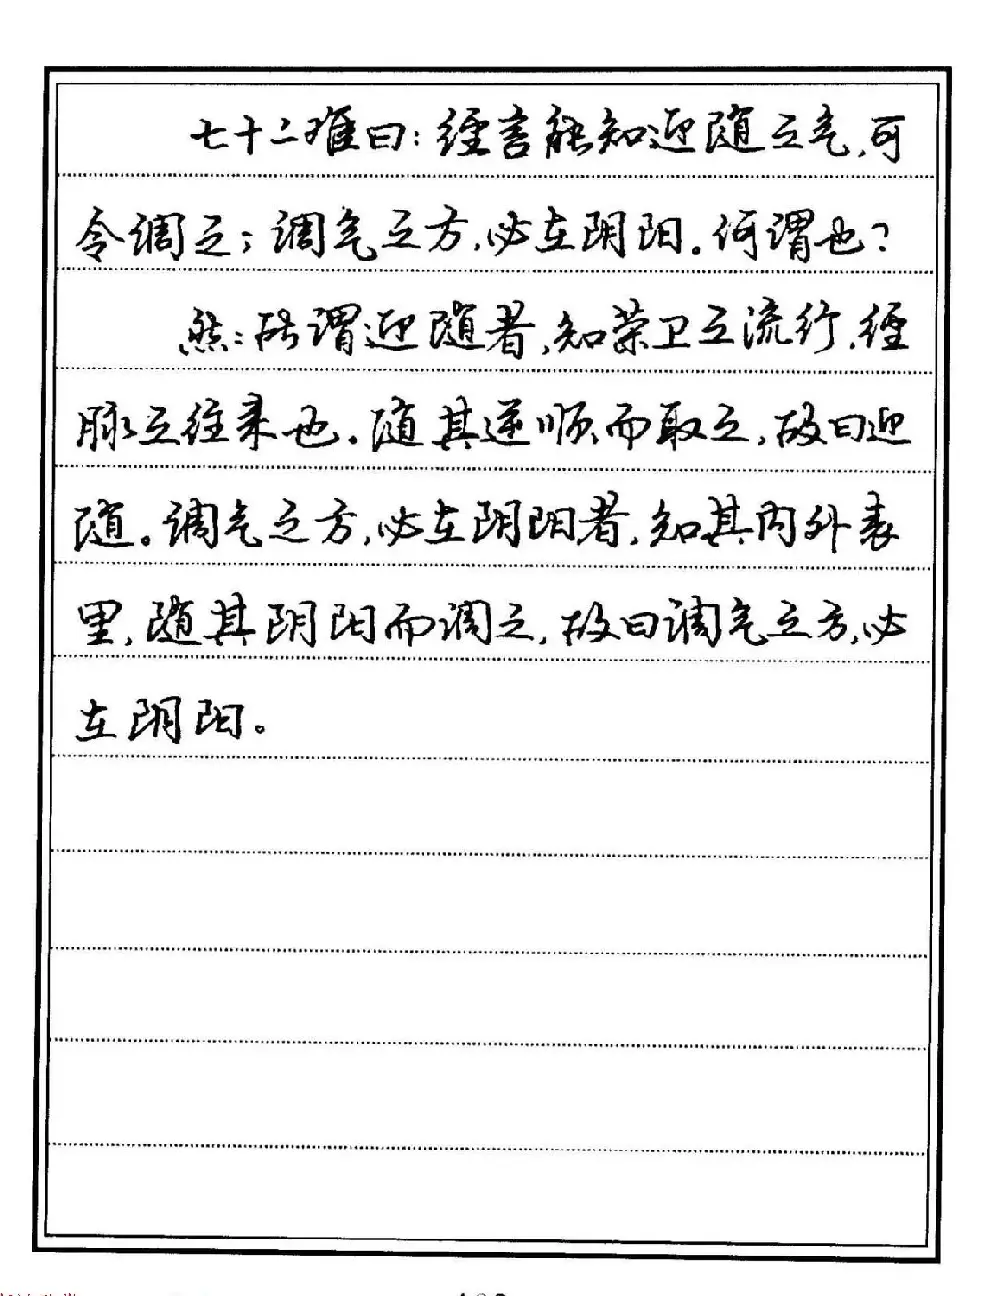 七十二难曰：经言能知迎随之气，可
令调之；调气之方，必在阴阳。何谓也？
然：所谓迎随者，知荣卫之流行，经
脉之往来也。随其逆顺而取之，故曰迎
随。调气之方，必在阴阳者，知其内外表
里，随其阴阳而调之，故曰调气之方，必
在阴阳。